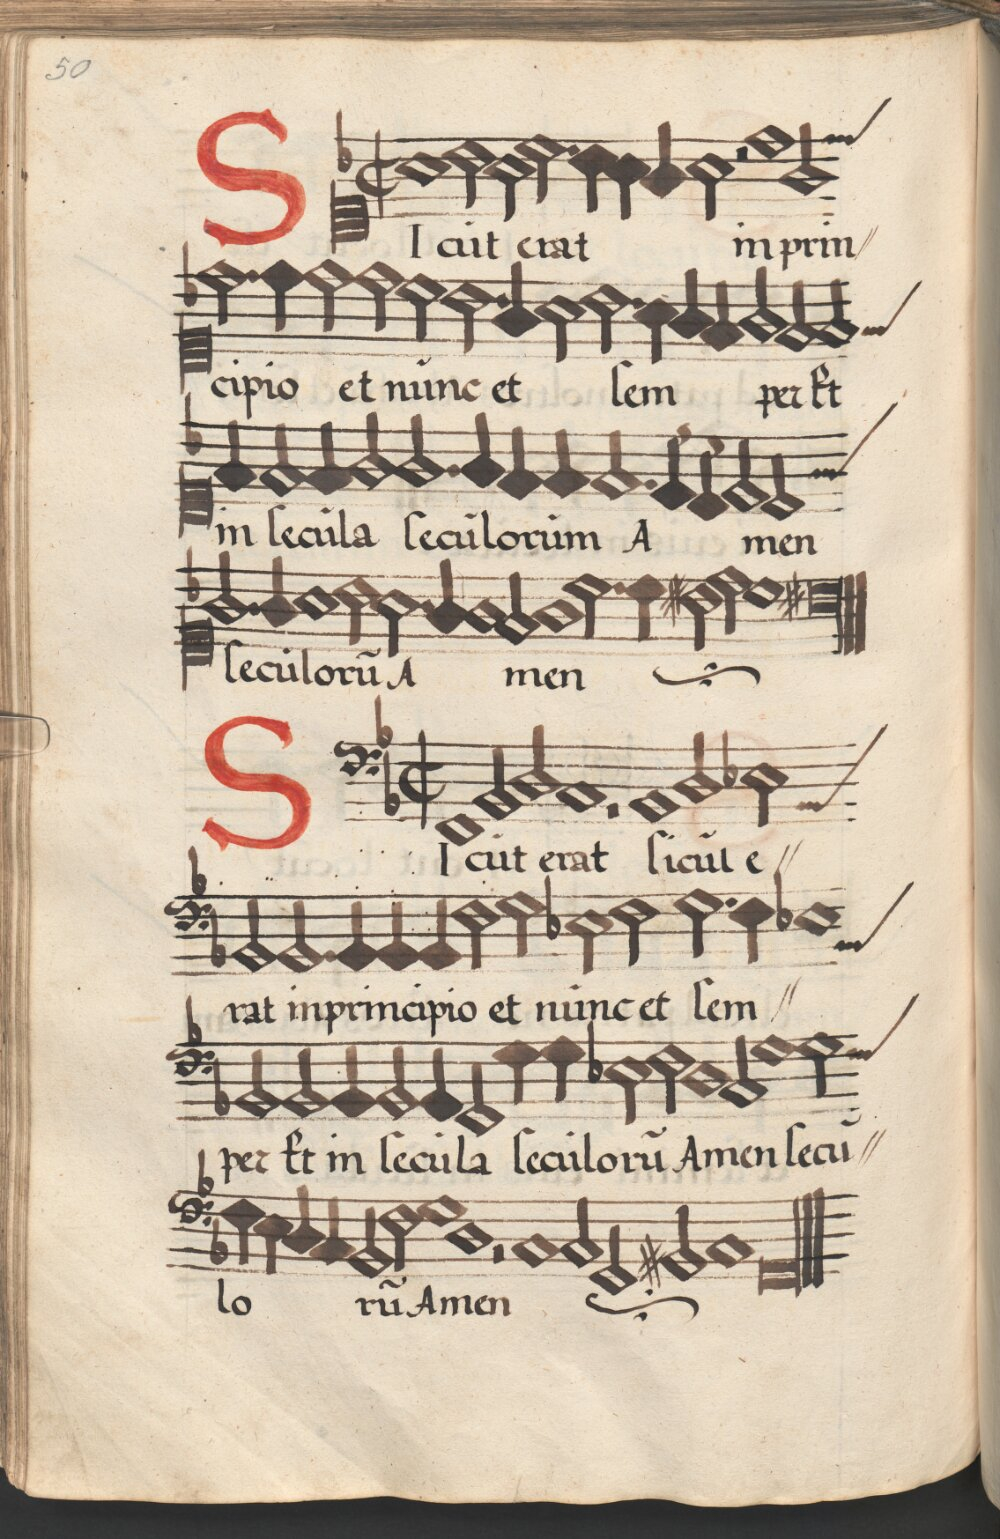 50
SIcut erat in prin//
cipio et nunc et sem per Et
in secula seculorum A men
seculorū A men
SIcut erat sicut e//
rat in principio et nunc et sem//
per Et in secula seculorū Amen secū//
lo rū Amen